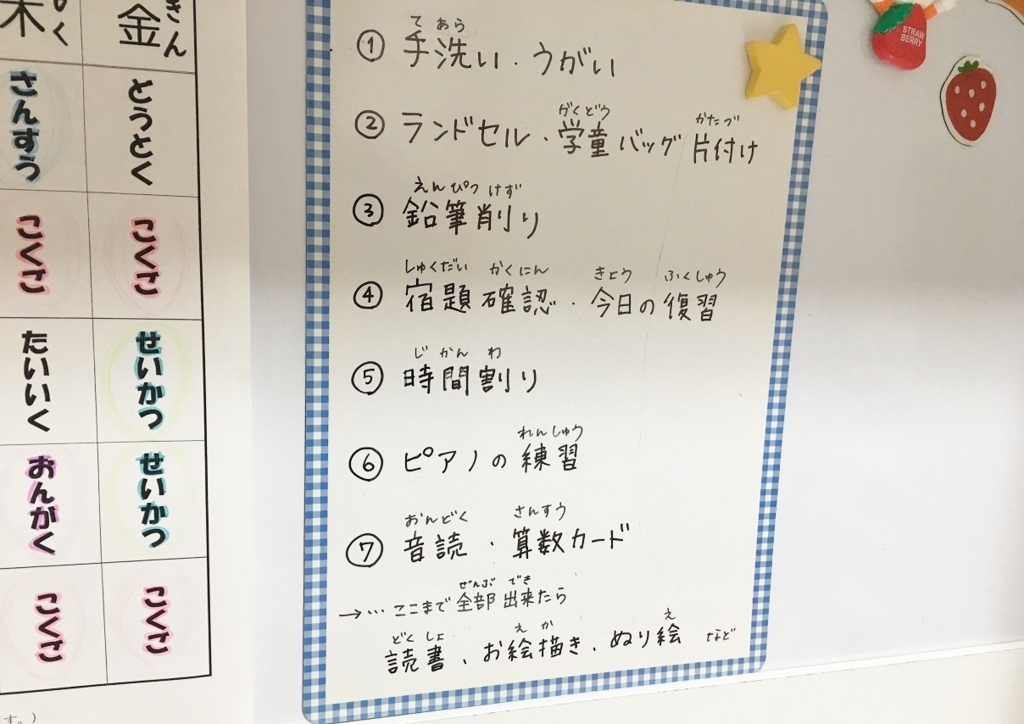 木 金
く きん
さんすう とうとく
こくご こくご
たいいく せいかつ
おんがく せいかつ
こくご こくご
す。)
て あら
① 手洗い・うがい
がくどう かたづ
② ランドセル・学童バッグ 片付け
えんぴつ けず
③ 鉛筆削り
しゅくだい かくにん きょう ふくしゅう
④ 宿題確認・今日の復習
じ かん わ
⑤ 時間割り
れんしゅう
⑥ ピアノの練習
おんどく さんすう
⑦ 音読・算数カード
ぜんぶ でき
→… ここまで全部出来たら
どくしょ え か え
読書、お絵描き、ぬり絵 など
STRAW
BERRY